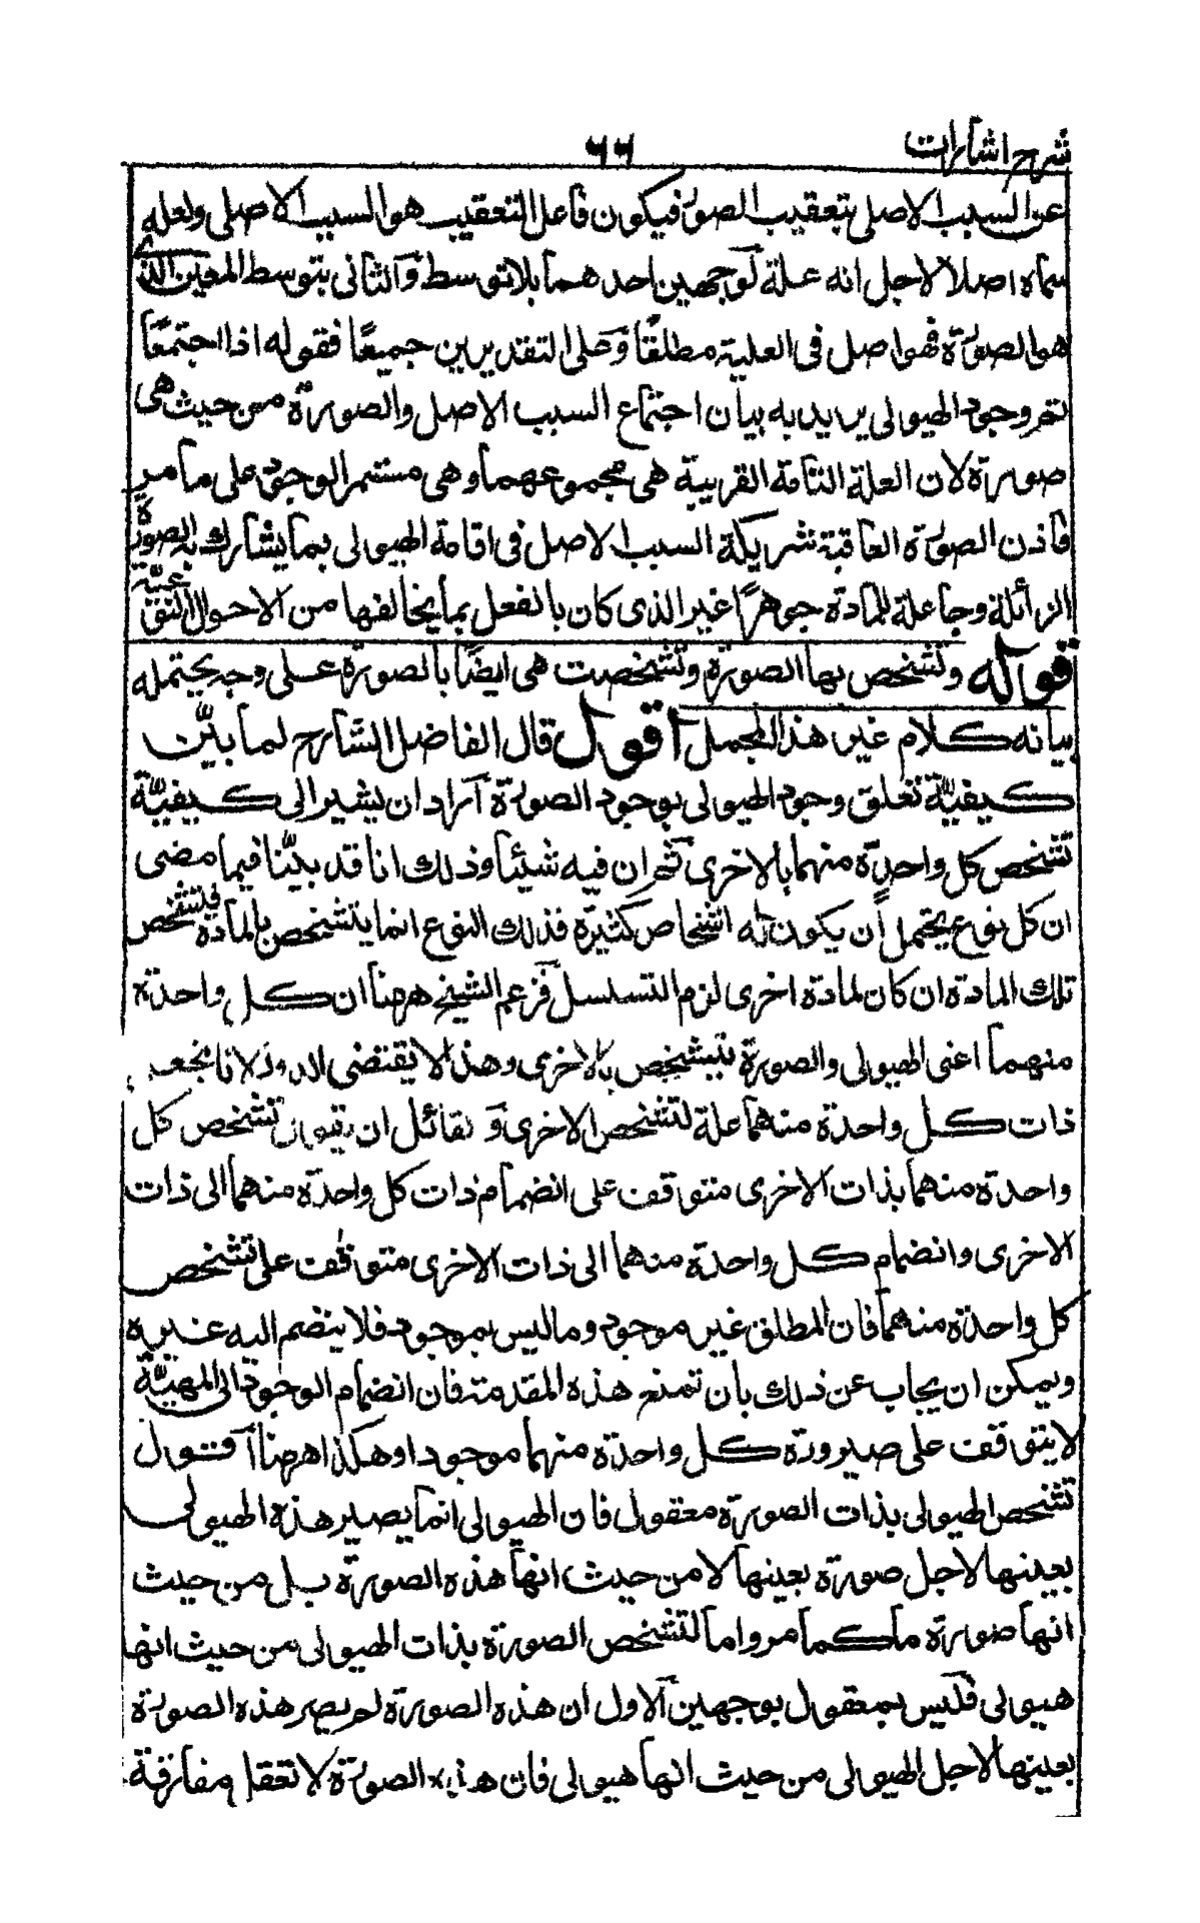 شرح اشارات
٦٦
عن السبب الاصلى بتعقيب الصور فيكون فاعل التعقيب هو السبب الاصلى ولعله
سماه اصلا لاجل انه علة لوجهين احدهما بلا توسط والثانى بتوسط المعين الذى
هو الصورة فهو اصل فى العلية مطلقًا وعلى التقديرين جميعًا فقوله اذا اجتمعا
تم وجود الهيولى يريد به بيان اجتماع السبب الاصل والصورة من حيث هى
صورة لان العلة التامة القريبة هى مجموعهما وهى مستمر الوجود على ما مر
فاذن الصورة العاقبة شريكة السبب الاصل فى اقامة الهيولى بما يشارك به الصورة
الزائلة وجاعلة للمادة جوهرًا غير الذى كان بالفعل بما يخالفها من الاحوال النوعية
قوله وتشخص بها الصورة وتشخصت هى ايضًا بالصورة على وجه يحتمله
بيانه كلام غير هذا المجمل اقول قال الفاضل الشارح لما بيّن
كيفيّة تعلق وجود الهيولى بوجود الصورة اراد ان يشير الى كيفيّة
تشخص كل واحدة منهما بالاخرى ثم ان فيه شيئًا وذلك انا قد بيّنا فيما مضى
ان كل نوع يحتمل أن يكون له اشخاص كثيرة فذلك النوع انما يتشخص بالمادة فتشخص
تلك المادة ان كان لمادة اخرى لزم التسلسل فزعم الشيخ ههنا ان كل واحدة
منهما اعنى الهيولى والصورة تتشخص بالاخرى وهذا لا يقتضى الدور لانا نجعل
ذات كل واحدة منهما علة لتشخص الاخرى و لقائل ان يقول تشخص كل
واحدة منهما بذات الاخرى متوقف على انضمام ذات كل واحدة منهما الى ذات
الاخرى وانضمام كل واحدة منهما الى ذات الاخرى متوقف على تشخص
كل واحدة منهما فان المطلق غير موجود وما ليس بموجود فلا ينضم اليه غيره
ويمكن ان يجاب عن ذلك بان تمنع هذه المقدمة فان انضمام الوجود الى المهيّة
لا يتوقف على صيرورة كل واحدة منهما موجودا وهكذا ههنا أقول
تشخص الهيولى بذات الصورة معقول فان الهيولى انما يصير هذه الهيولى
بعينها لاجل صورة بعينها لا من حيث انها هذه الصورة بل من حيث
انها صورة ما كما مر واما لتشخص الصورة بذات الهيولى من حيث انها
هيولى فليس بمعقول بوجهين الاول ان هذه الصورة لم يصر هذه الصورة
بعينها لاجل الهيولى من حيث انها هيولى فان هذه الصورة لا تعقل مفارقة